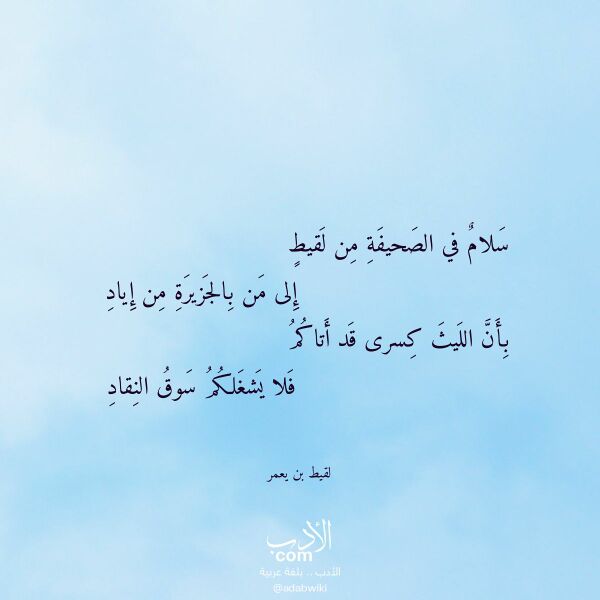 سَلامٌ في الصَحيفَةِ مِن لَقيطٍ
إِلى مَن بِالجَزيرَةِ مِن إِيادِ
بِأَنَّ اللَيثَ كِسرى قَد أَتاكُمُ
فَلا يَشغَلكُمُ سَوقُ النِقادِ
لقيط بن يعمر
الأدب
.com
الأدب .. بلغة عربية
@adabwiki